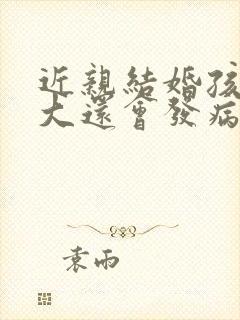 近親結婚孩
大還會發病
袁雨